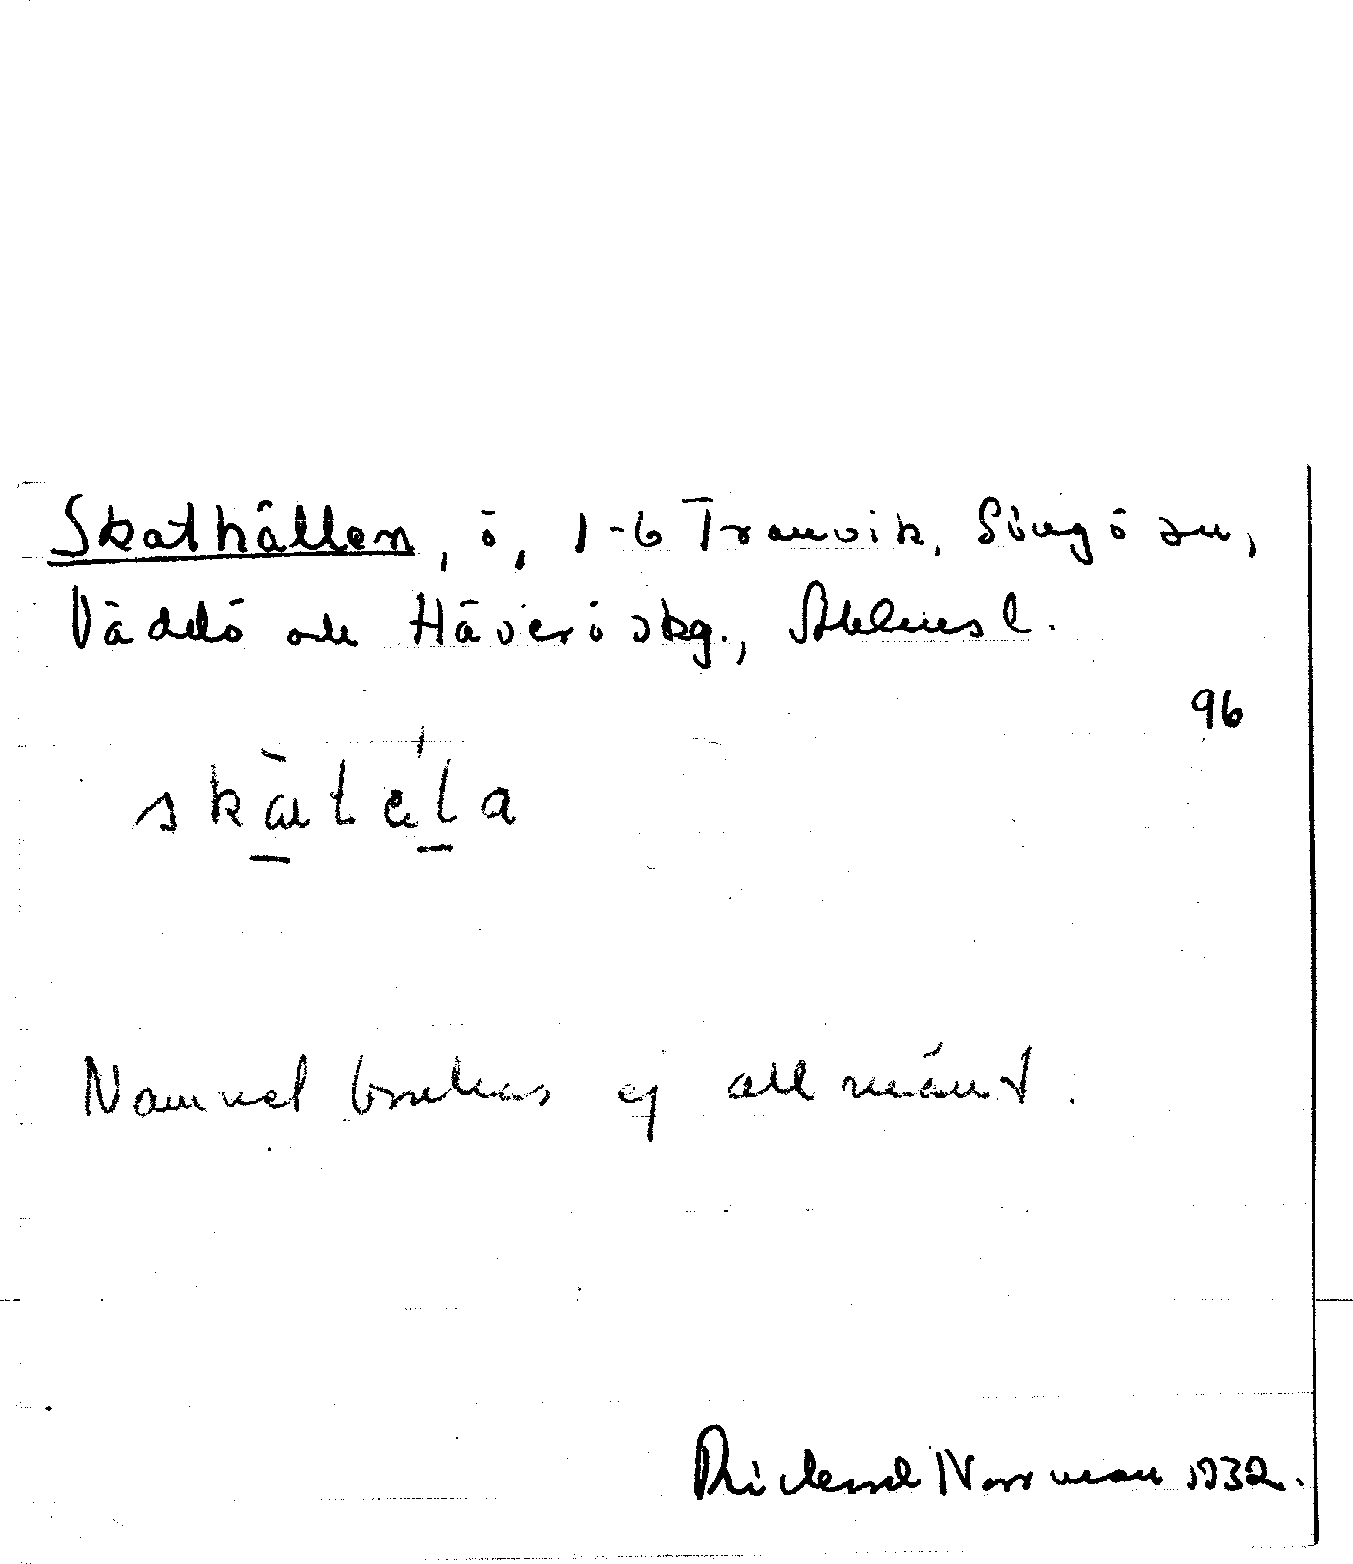 Skathällen, ö, 1-6 Tranvik, Singö sn,
Väddö och Häverö skg., Sthlms l.
96
Namnet brukas ej allmänt.
Rickard Norrman 1932.